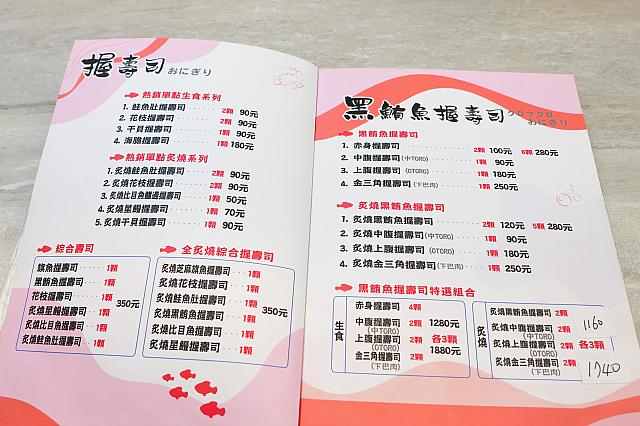 握壽司 おにぎり
熱銷單點生食系列
1. 鮭魚肚握壽司 ····· 2顆 90元
2. 花枝握壽司 ····· 2顆 90元
3. 干貝握壽司 ····· 1顆 90元
4. 海膽握壽司 ····· 1顆 180元
熱銷單點炙燒系列
1. 炙燒鮭魚肚握壽司 ····· 2顆 90元
2. 炙燒花枝握壽司 ····· 2顆 90元
3. 炙燒比目魚鰭邊握壽司 ··· 1顆 50元
4. 炙燒星鰻握壽司 ····· 1顆 70元
5. 炙燒干貝握壽司 ····· 1顆 90元
綜合壽司
旗魚握壽司 ····· 1顆
黑鮪魚握壽司 ···· 1顆
花枝握壽司 ····· 1顆 350元
炙燒星鰻握壽司 ··· 1顆
炙燒比目魚握壽司 ·· 1顆
炙燒鮭魚肚握壽司 ·· 1顆
全炙燒綜合握壽司
炙燒芝麻旗魚握壽司 ·· 1顆
炙燒花枝握壽司 ···· 1顆
炙燒鮭魚肚握壽司 ··· 1顆 350元
炙燒黑鮪魚握壽司 ··· 1顆
炙燒比目魚握壽司 ··· 1顆
炙燒星鰻握壽司 ···· 1顆
黑鮪魚握壽司 クロマグロ おにぎり
黑鮪魚握壽司
1. 赤身握壽司 ····· 2顆 100元 6顆 280元
2. 中腹握壽司(中TORO) ···· 1顆 90元
3. 上腹握壽司 (OTORO) ···· 1顆 180元
4. 金三角握壽司 (下巴肉) ··· 1顆 250元
炙燒黑鮪魚握壽司
1. 炙燒黑鮪魚握壽司 ····· 2顆 120元 5顆 280元
2. 炙燒中腹握壽司(中TORO) ··· 1顆 90元
3. 炙燒上腹握壽司 (OTORO) ··· 1顆 180元
4. 炙燒金三角握壽司 (下巴肉) ·· 1顆 250元
黑鮪魚握壽司特選組合
生食
赤身握壽司 4顆
中腹握壽司 2顆 1280元
(中TORO)
上腹握壽司 2顆 各3顆
(OTORO)
金三角握壽司 2顆 1880元
(下巴肉)
炙燒
炙燒黑鮪魚握壽司 2顆
炙燒中腹握壽司 2顆 1160
(中TORO)
炙燒上腹握壽司 2顆 各3顆
(OTORO)
炙燒金三角握壽司 2顆 1740
(下巴肉)